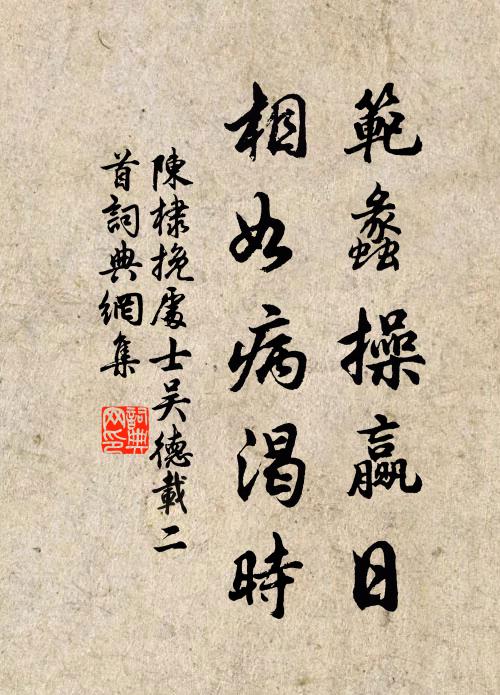 範蠡操贏日
相如病渴時
陳棣挽處士吴德載二
首詞典網集
詞典
网印